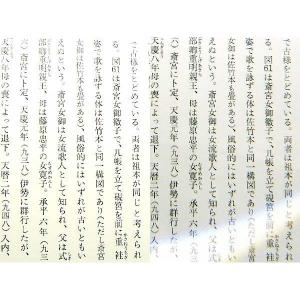 で古様をとどめている。両者は祖本が同じと考えられ
る。図61は斎宮女御徽子で、几帳を立て硯筥を前に重袿
姿で歌を詠ずる体は佐竹本と同一構図であり(ただし斎宮
女御は佐竹本も畳がある)、風俗的にはいずれが古いともい
えぬという。斎宮女御は女流歌人として知られ、父は式
部卿重明親王、母は藤原忠平の女寛子。承平六年(九三
六)斎宮に卜定、天慶元年(九三八)伊勢に群行したが、
天慶八年母の喪によって退下。天暦二年(九四八)入内、
で古様をとどめている。両者は祖本が同じと考えられ
る。図61は斎宮女御徽子で、几帳を立て硯筥を前に重袿
姿で歌を詠ずる体は佐竹本と同一構図であり(ただし斎宮
女御は佐竹本も畳がある)、風俗的にはいずれが古いともい
えぬという。斎宮女御は女流歌人として知られ、父は式
部卿重明親王、母は藤原忠平の女寛子。承平六年(九三
六)斎宮に卜定、天慶元年(九三八)伊勢に群行したが、
天慶八年母の喪によって退下。天暦二年(九四八)入内、